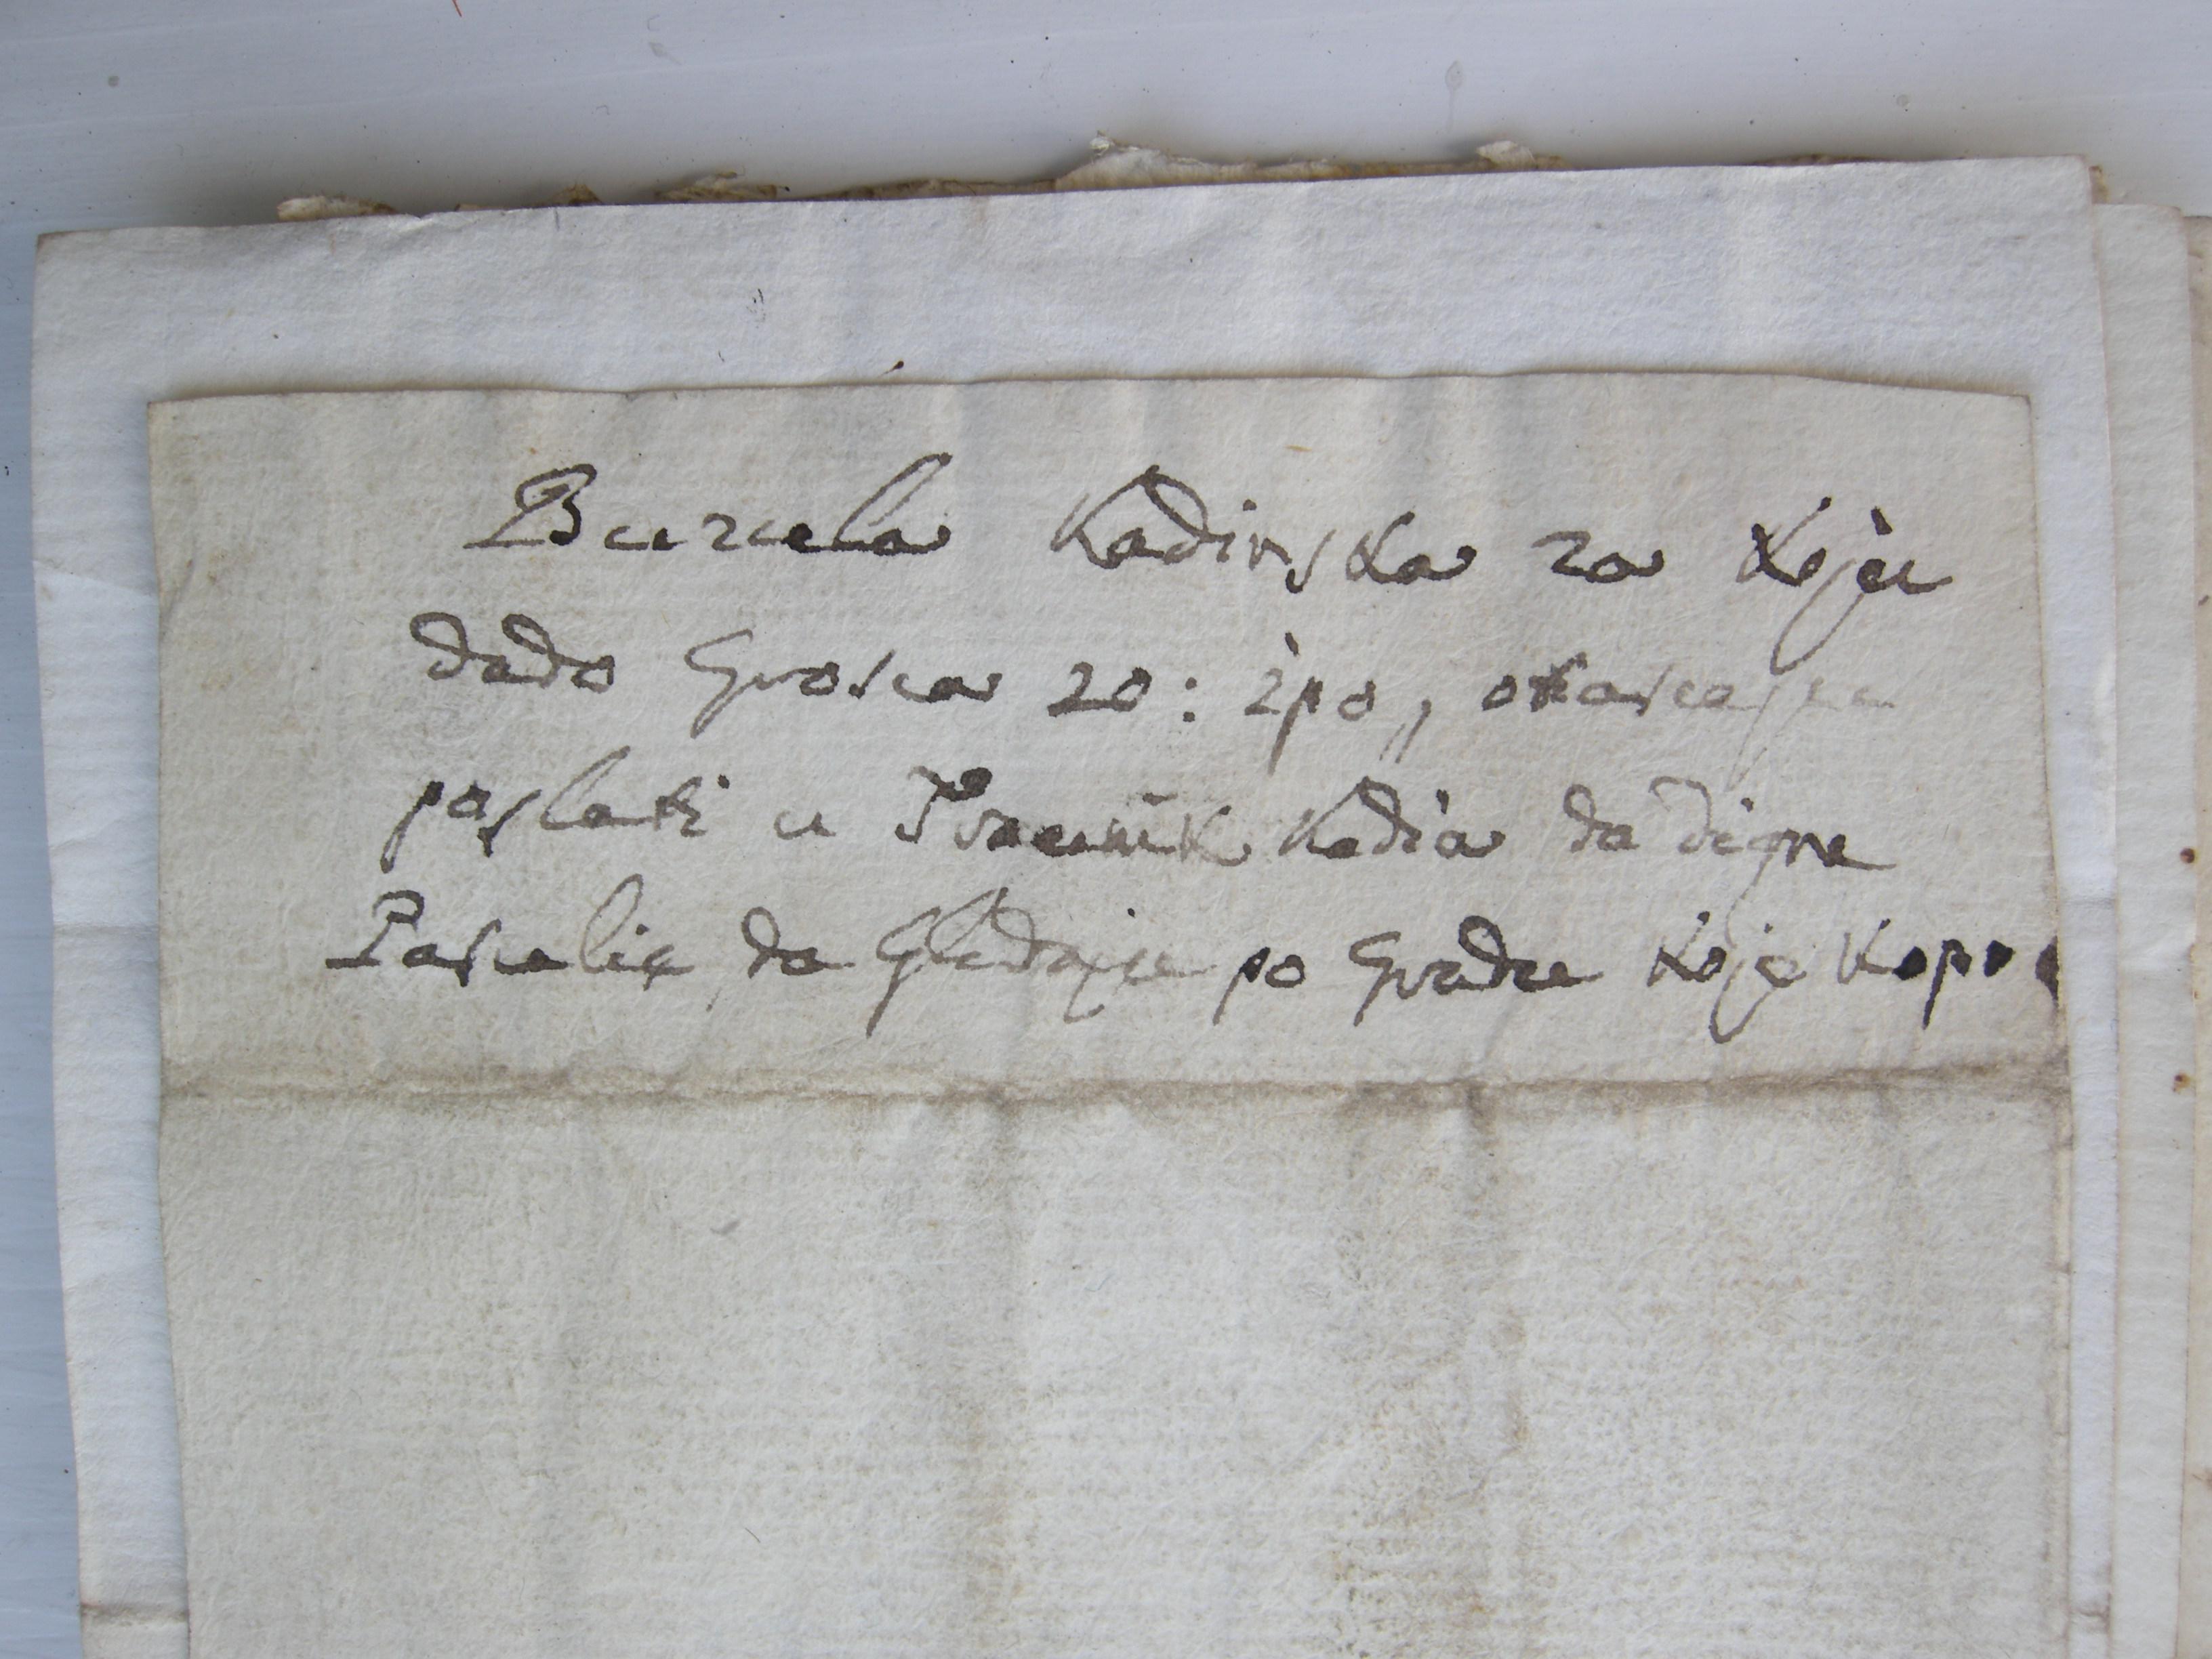 Buruela Kadinska za Koju
dado Grosca 20: i po,, otascega
poslati u Travnik Kadia da digne
Pascalie da Gledaju po Gradu Koje Kopo